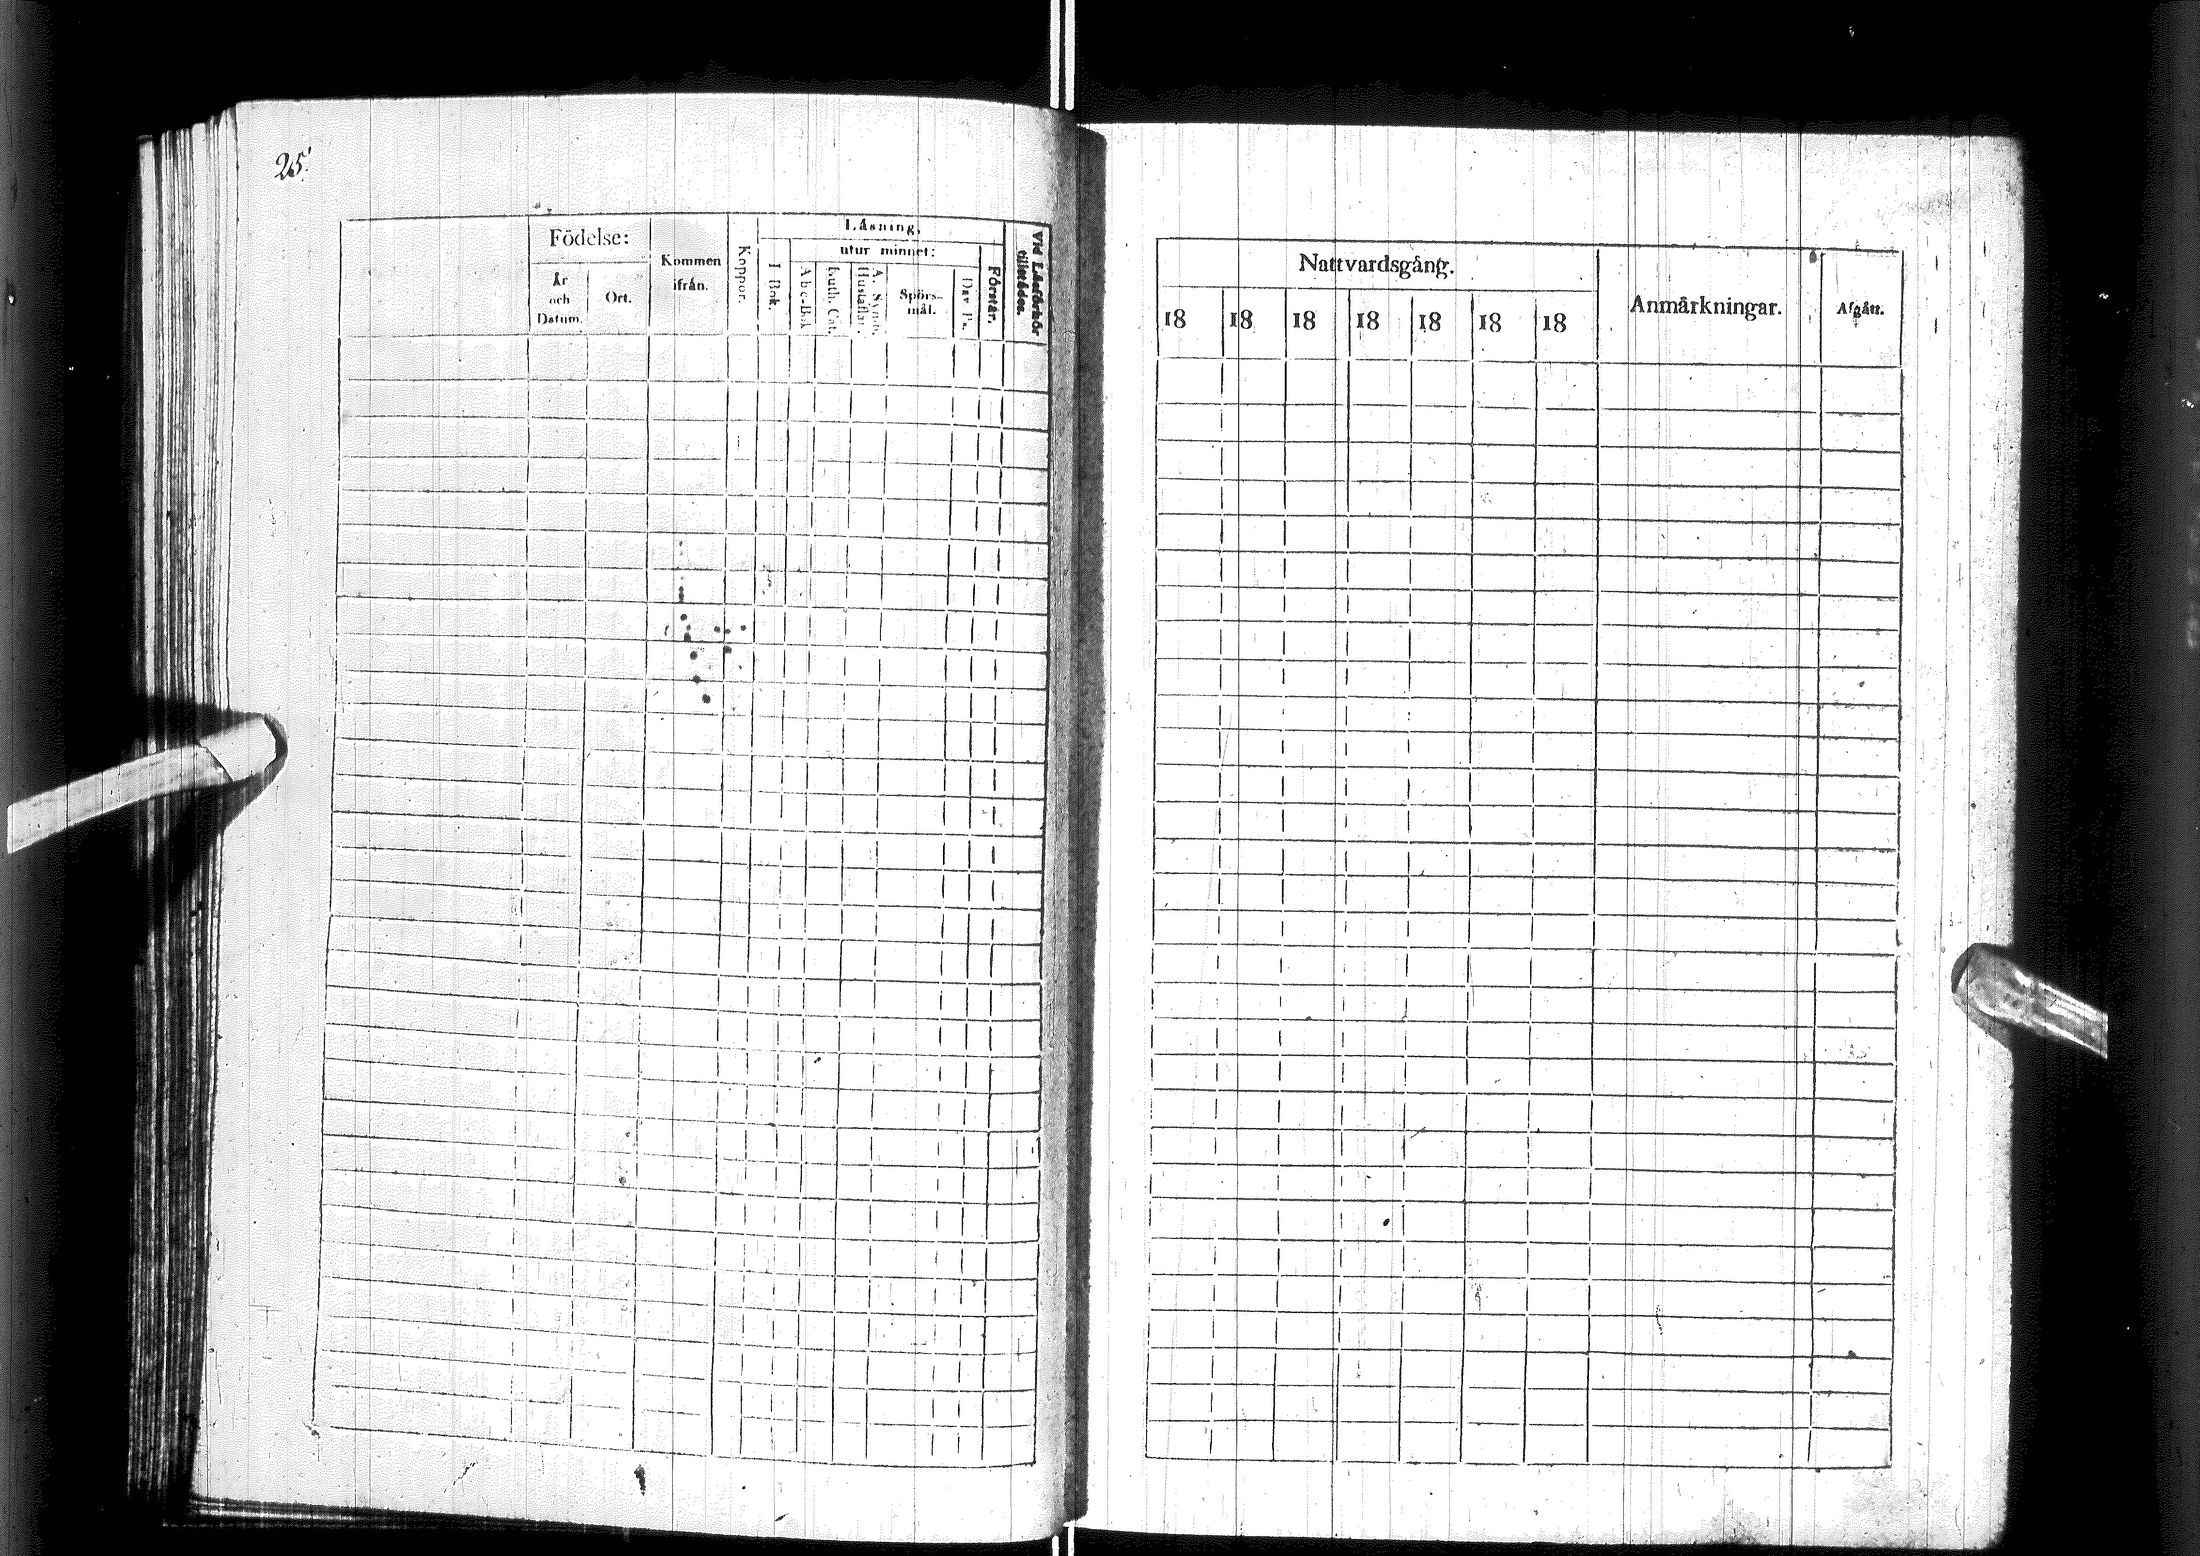 25
Födelse:
År och Datum.
Ort.
Kommen ifrån.
Koppor.
Läsning,
I Bok.
utur minnet:
Abc-Bok
Luth. Cat.
A. Symb. Hustaflan.
Spörs-mål.
Dav. Ps.
Förstår.
Vid Läsförhör tillstädes.
Nattvardsgång.
18 18 18 18 18 18 18
Anmärkningar.
Afgått.